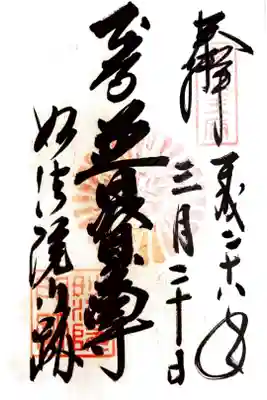 奉拝
平成二十八年
三月二十日
普賢尊
妙法院門跡